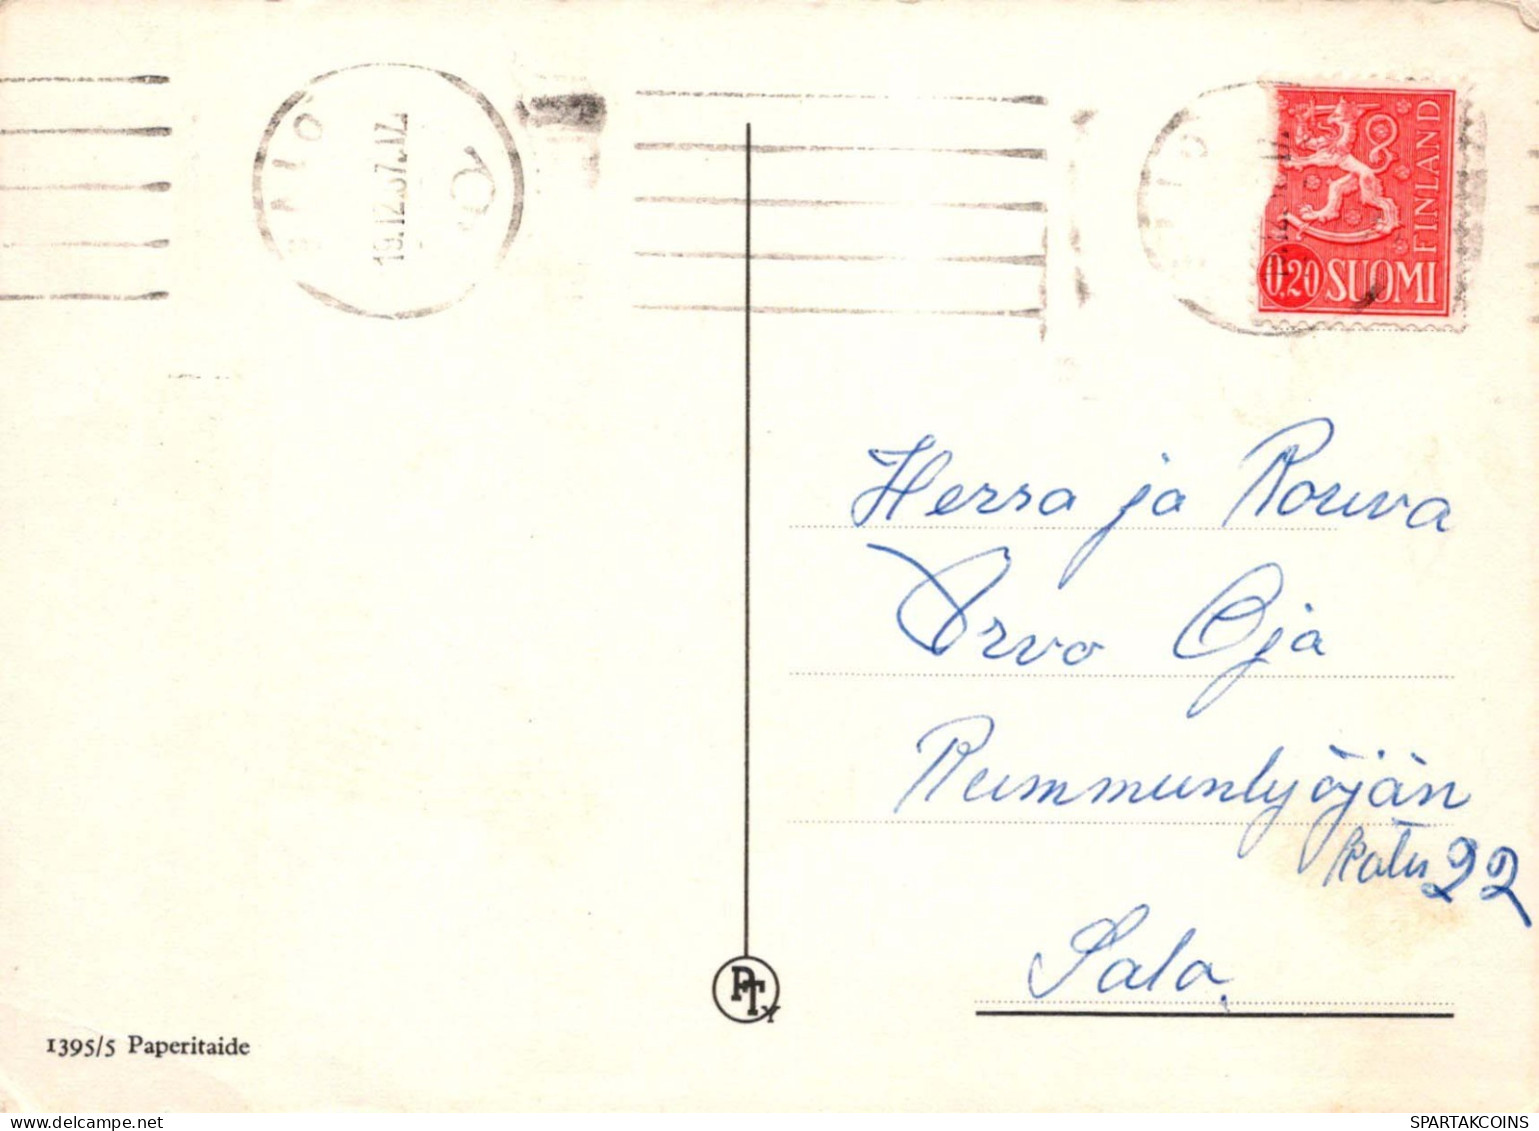 SALO
19.12.67.17
FINLAND
0,20 SUOMI
Herra ja Rouva
Arvo Oja
Rummunlyöjän
katu 22
Salo.
PTY
1395/5 Paperitaide
delcampe.net
SPARTAKCOINS